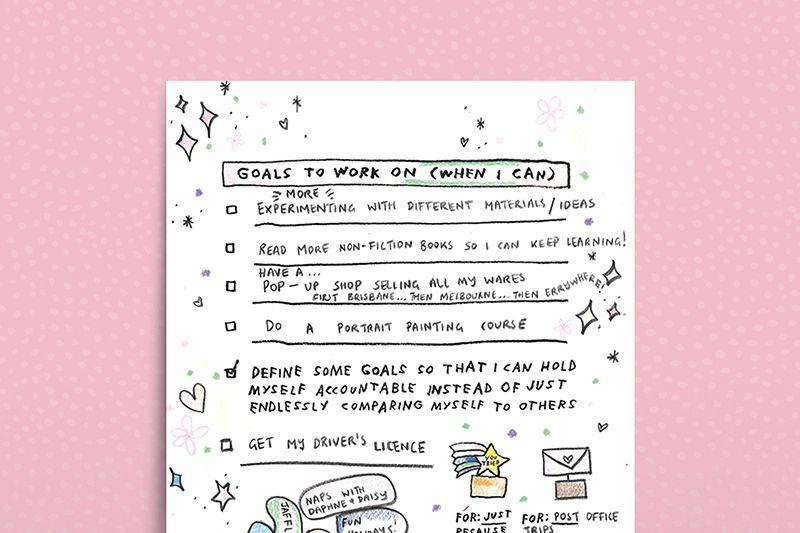 GOALS TO WORK ON (WHEN I CAN)
MORE
EXPERIMENTING WITH DIFFERENT MATERIALS/IDEAS
READ MORE NON-FICTION BOOKS SO I CAN KEEP LEARNING!
HAVE A...
POP-UP SHOP SELLING ALL MY WARES
FIRST BRISBANE... THEN MELBOURNE... THEN ERRYWHERE!
DO A PORTRAIT PAINTING COURSE
DEFINE SOME GOALS SO THAT I CAN HOLD
MYSELF ACCOUNTABLE INSTEAD OF JUST
ENDLESSLY COMPARING MYSELF TO OTHERS
GET MY DRIVER'S LICENCE
YOU
TRIED
NAPS WITH
DAPHNE + DAISY
JAFFL
FUN
HOLIDAYS!
FOR: JUST
BECAUSE
FOR: POST OFFICE
TRIPS